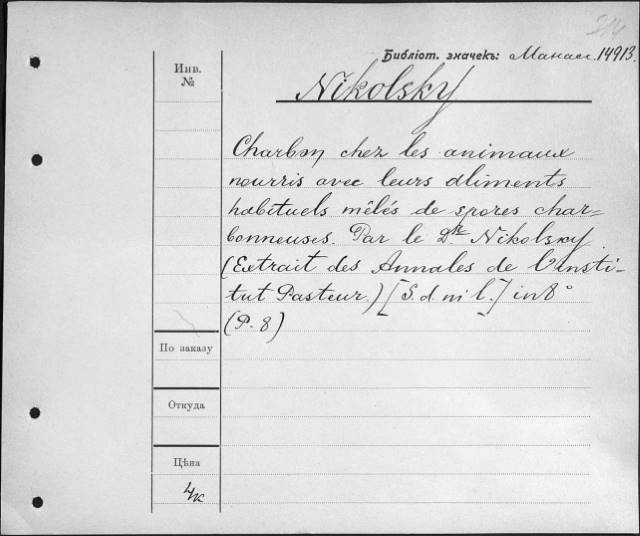 214
Библіот. значекъ: Манас. 14913.
Инв.
№
Nikolsky
Charbon chez les animaux
nourris avec leurs aliments
habituels mêlés de spores char=
bonneuses. Par le Dr. Nikolsky.
(Extrait des Annales de l'insti-
tut Pasteur.) [S. d. ni l.] in 8°
(P. 8)
По заказу
Откуда
Цѣна
4к